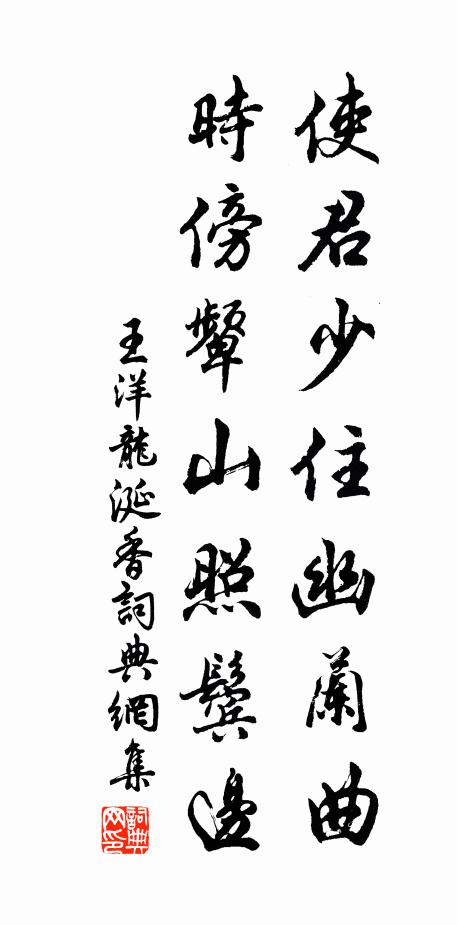 使君少住幽蘭曲
時傍顰山照鬢邊
王洋龍涎香詞典網集
詞典網印